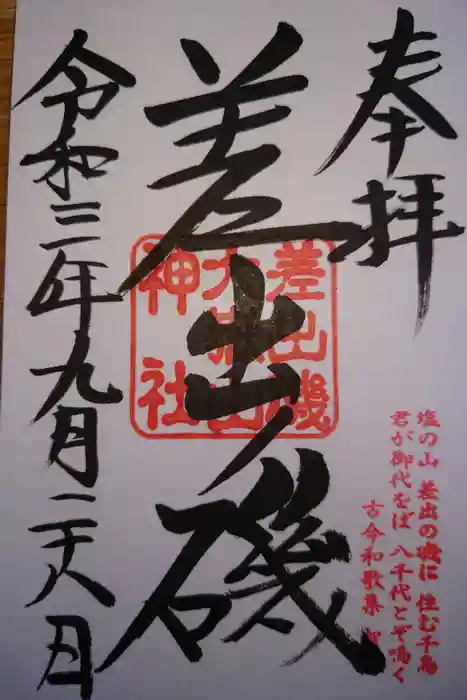 奉拝
差出磯
差出磯
大嶽山
神社
令和三年九月二十八日
塩の山 差出の磯に 住む千鳥
君が御代をば 八千代とぞ鳴く
古今和歌集